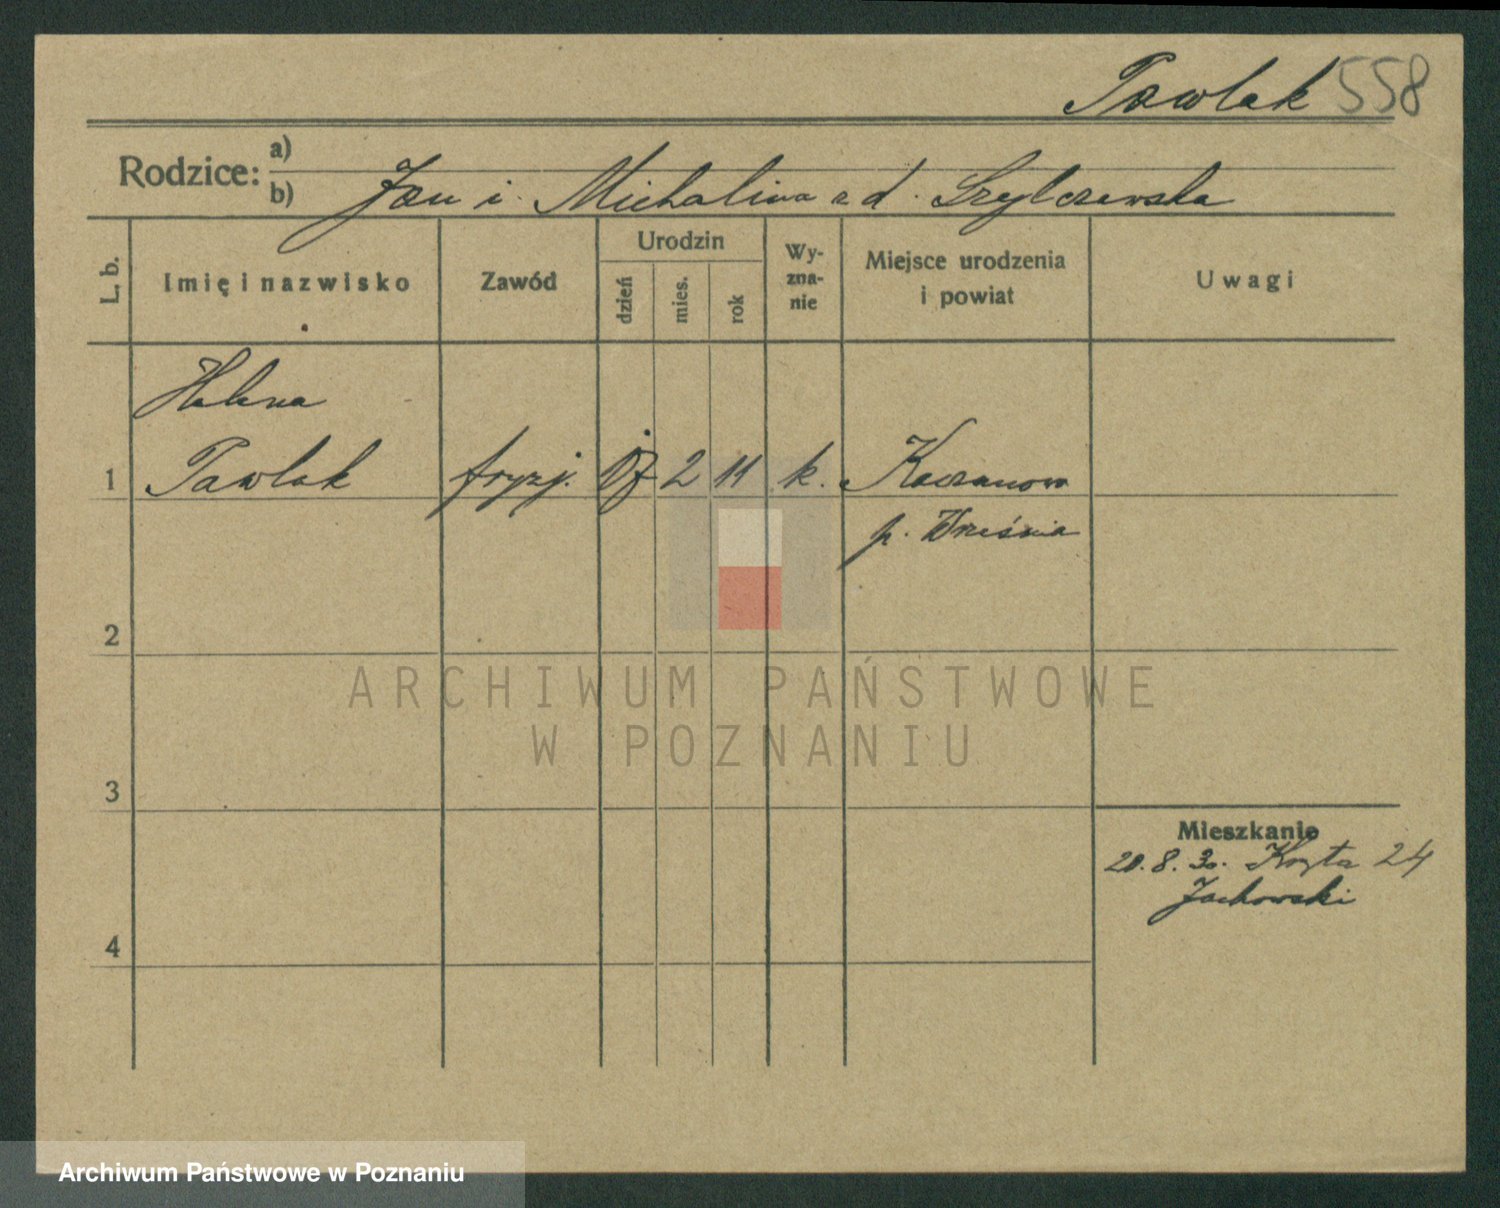 Pawlak 558
Rodzice: a)
b) Jan i Michalina z d.
L. b.
Imię i nazwisko
Zawód
Urodzin
dzień
mies.
rok
Wy-
zna-
nie
Miejsce urodzenia
i powiat
Uwagi
Helena
1 Pawlak fryzj. 2 11 k. Kaczanowo
p. Września
2
3
4
Mieszkanie
20. 8. 30. 24
Jachowski
ARCHIWUM PAŃSTWOWE
W POZNANIU
Archiwum Państwowe w Poznaniu